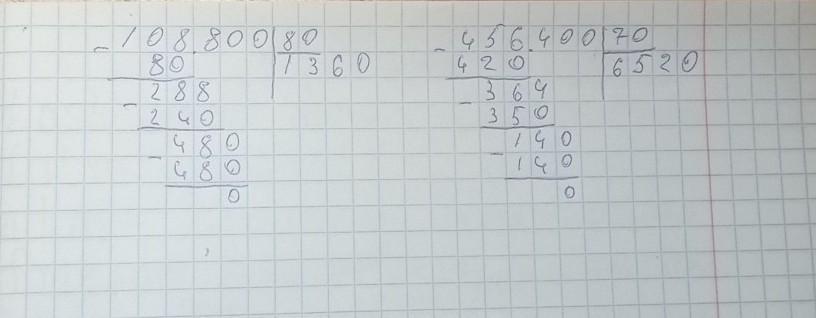 - 108.800 | 80
80 | 1360
288
- 240
480
- 480
0
- 456.400 | 70
420 | 6520
364
- 350
140
- 140
0